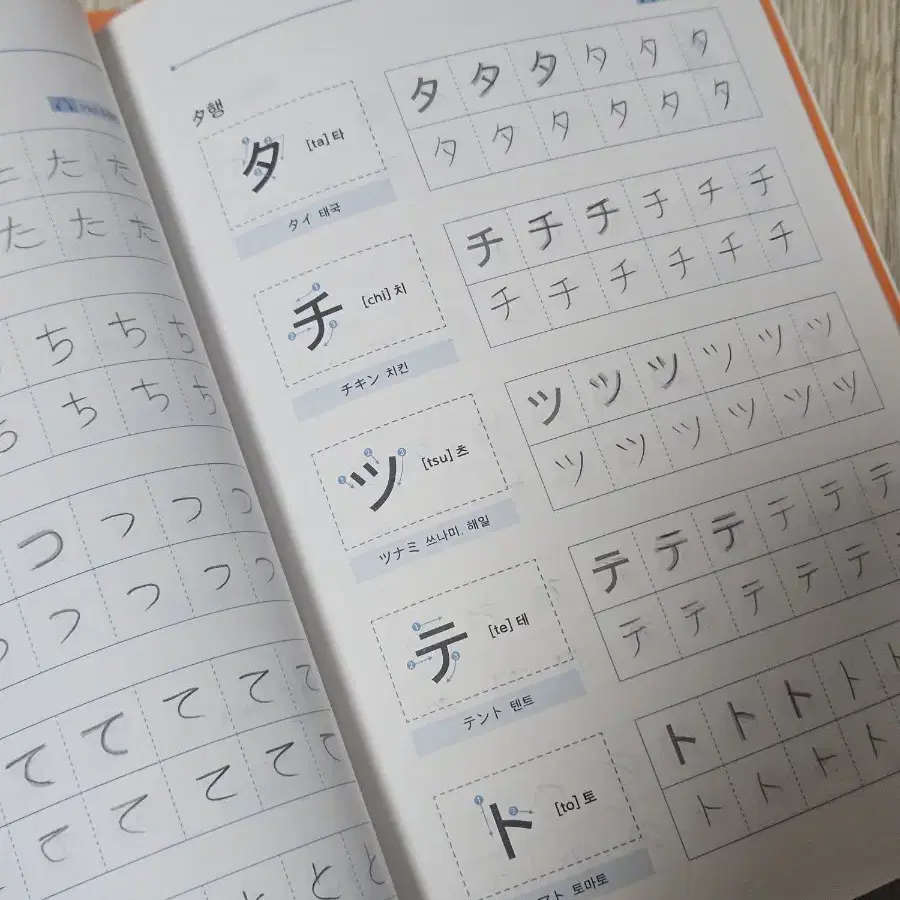 た た
た た た
ち ち ち
ち ち ち
つ つ つ つ
つ つ つ つ
て て て て て
て て て て て
と と と
タ행
タ [ta] 타
タイ 태국
タ タ タ タ タ タ
タ タ タ タ タ タ
チ [chi] 치
チキン 치킨
チ チ チ チ チ チ
チ チ チ チ チ チ
ツ [tsu] 츠
ツナミ 쓰나미, 해일
ツ ツ ツ ツ ツ ツ
ツ ツ ツ ツ ツ ツ
テ [te] 태
テント 텐트
テ テ テ テ テ テ
テ テ テ テ テ
ト [to] 토
マト 토마토
ト ト ト ト
ト ト ト ト